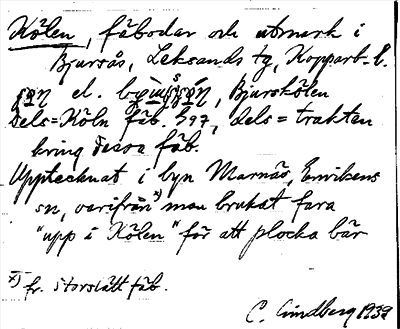 Kölen, fäbodar och utmark i
Bjursås, Leksands tg, Kopparb. l.
el. Bjurskölen
dels = Köln fäb. 597, dels = trakten
kring dessa fäb.
Upptecknat i byn Marnäs, Envikens
sn, varifrån x) man brukat fara
"upp i Kölen" för att plocka bär
x) fr. Storslätt fäb.
C. Lindberg 1939